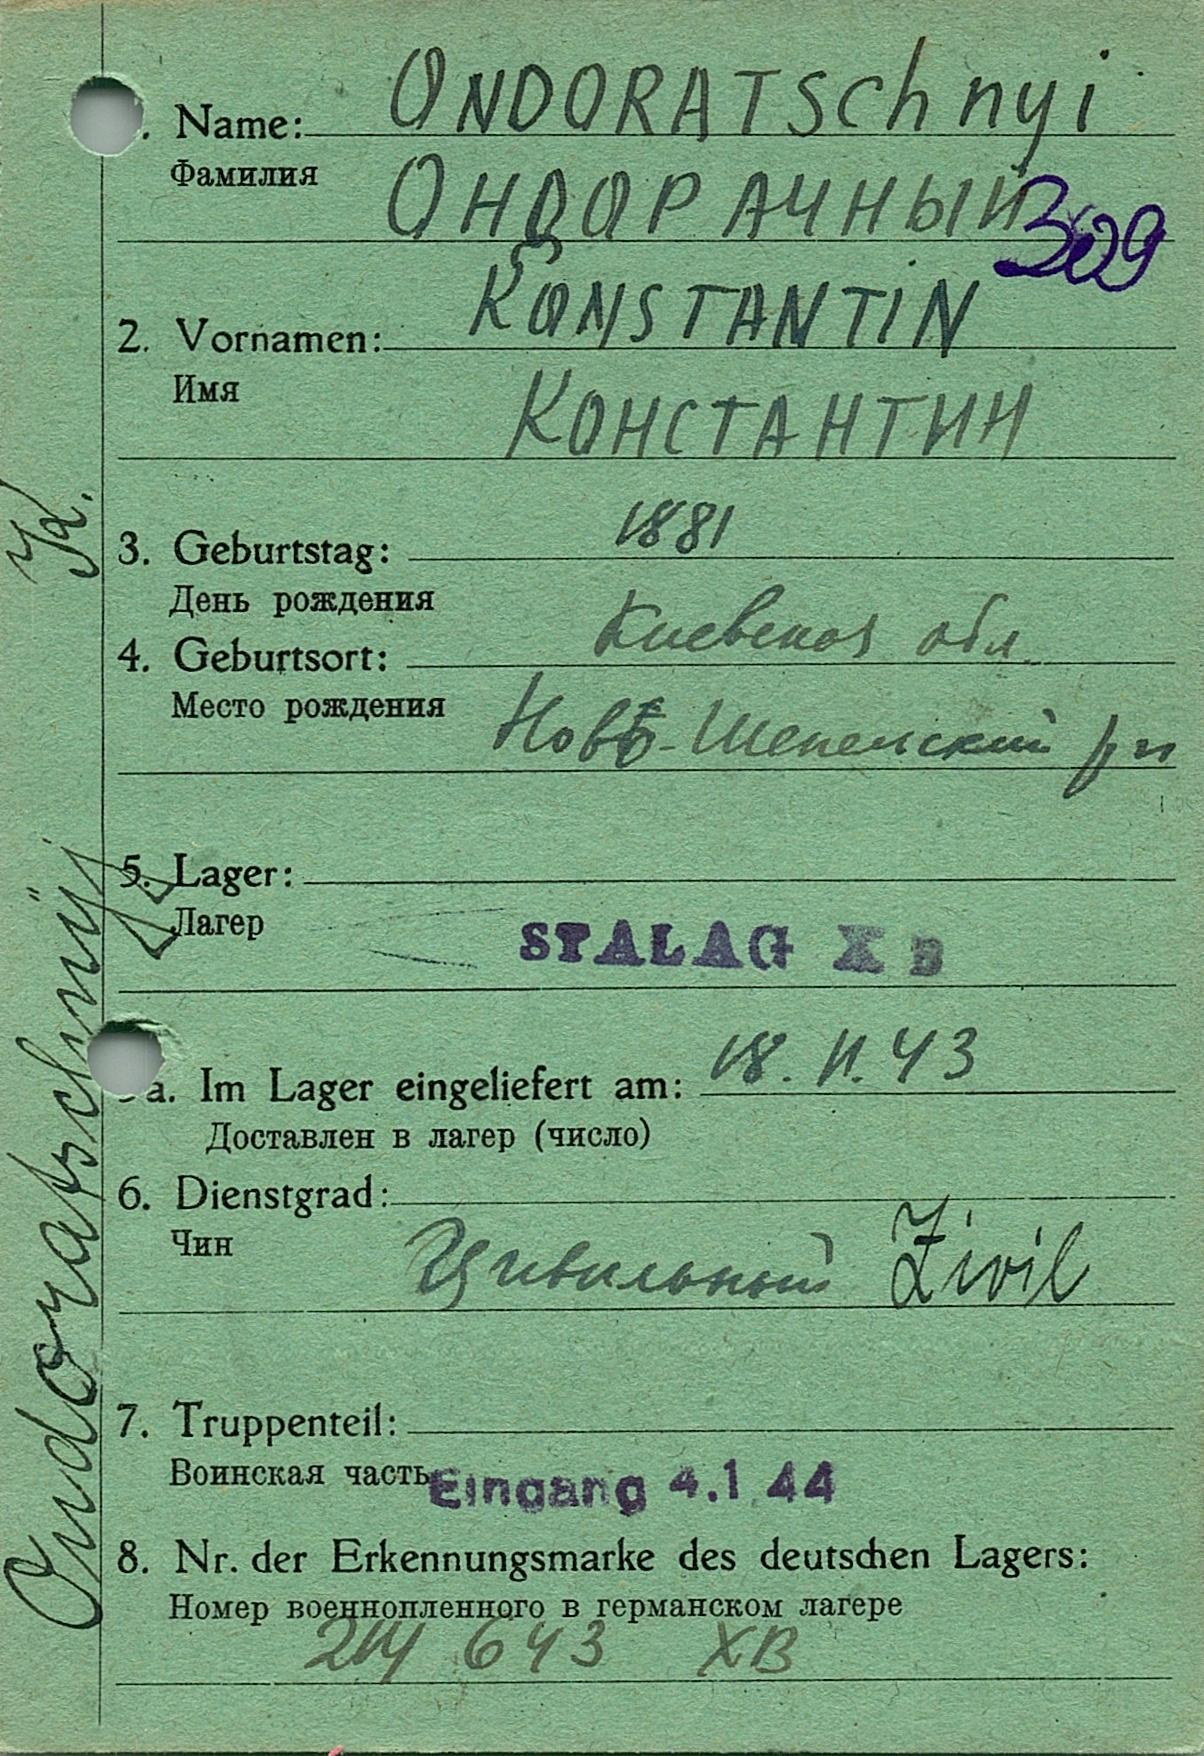 . Name: ONDORATSchnyi
Фамилия ОНДОРАЧНЫЙ
309
2. Vornamen: KONSTANTIN
Имя КОНСТАНТИН
3. Geburtstag: 1881
День рождения
4. Geburtsort: Киевской обл.
Место рождения
5. Lager:
Лагер STALAG X B
a. Im Lager eingeliefert am: 18.11.43
Доставлен в лагер (число)
6. Dienstgrad:
Чин Цивильный Zivil
7. Truppenteil:
Воинская часть Eingang 4.1 44
8. Nr. der Erkennungsmarke des deutschen Lagers:
Номер военнопленного в германском лагере
214 643 XB
Ondoratschnÿj